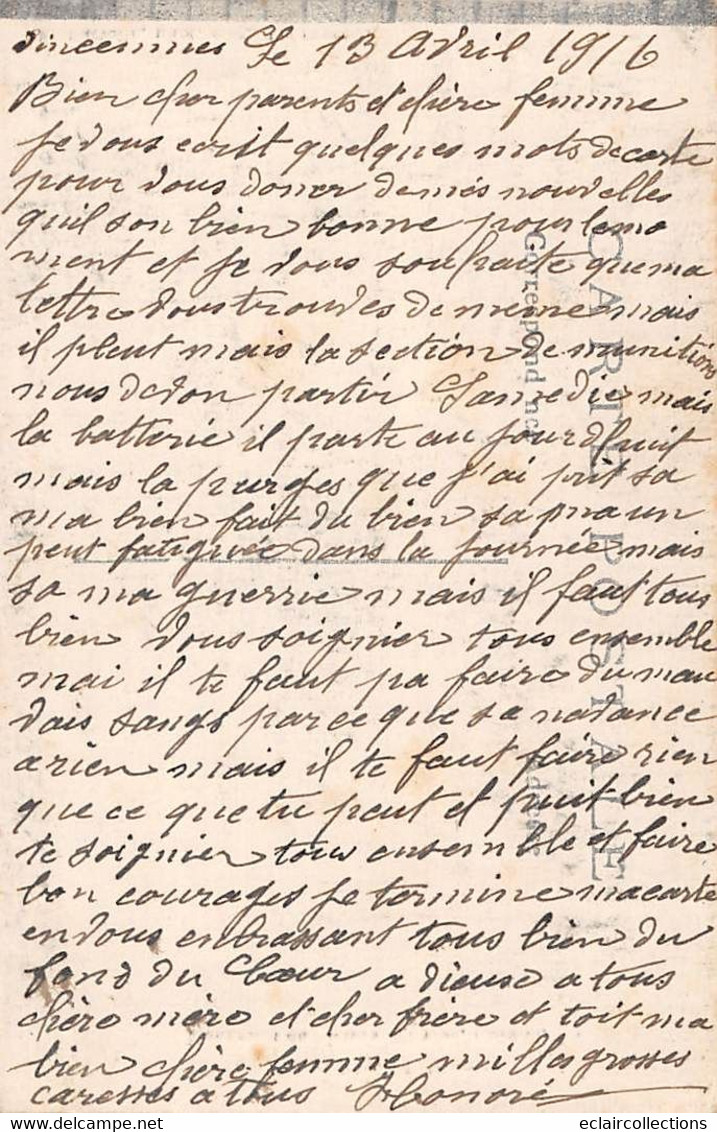 vincennes Le 13 Avril 1916
Bien cher parents et chère femme
Je vous ecrit quelques mots de carte
pour vous doner de mes nouvelles
quil son bien bonne pour lemo
ment et Je vous souhaite que ma
lettre vous trouves de meme mais
il pleut mais la section de munitions
nous devon partir Samedie mais
la batterie il parte au jourdhuit
mais la purges que j'ai prit sa
ma bien fait du bien sa ma un
peut fatiguée dans la journée mais
sa ma guerrie mais il faut tous
bien vous soignier tous ensemble
mai il te faut pa faire du mau
vais sangs parce que sa navance
a rien mais il te faut faire rien
que ce que tu peut et puit bien
te soignier tous ensemble et faire
bon courages je termine ma carte
en vous enbrassant tous bien du
fond du Cœur a dieuse a tous
chère mère et cher frère et toit ma
bien chère femme milles grosses
caresses a tous Honoré
CARTE POSTALE
Correspondance
eclaircollections